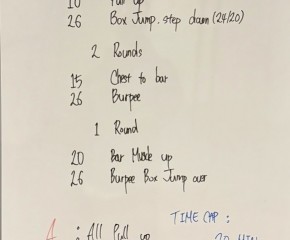 10 Pull up
26 Box Jump. step down (24/20)
2 Rounds
15 Chest to bar
26 Burpee
1 Round
20 Bar Muscle up
26 Burpee Box Jump over
TIME CAP :
4 : All Pull up
20 MIN